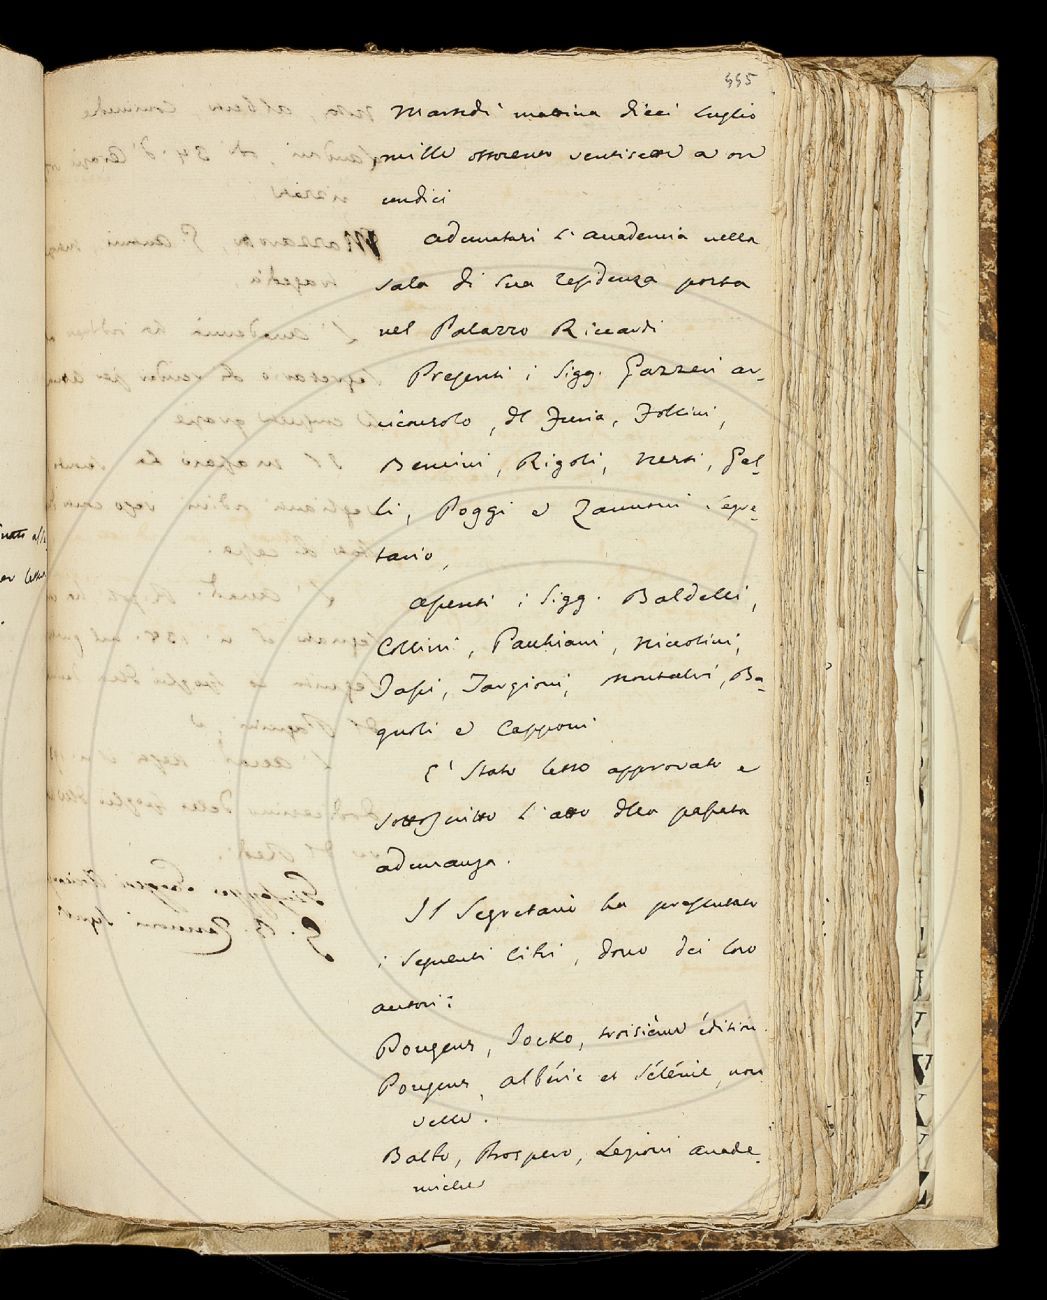 445
Martedì mattina dieci Luglio
mille ottocento ventisette a ore
undici
Adunatasi l'Accademia nella
sala di sua residenza posta
nel Palazzo Riccardi
Presenti i Sigg. Gazzeri ar-
ciconsolo, Del Furia, Follini,
Bencini, Rigoli, Nesti, Gel-
li, Poggi e Zannoni segre-
tario,
Assenti i Sigg. Baldelli,
Collini, Pauliani, Niccolini,
Tassi, Targioni, Montalvi, Ba-
gnoli e Capponi
E' stato letto approvato e
sottoscritto l'atto della passata
adunanza.
Il Segretario ha presentato
i seguenti libri, dono dei loro
autori:
Pougens, Jocko, troisième édition
Pougens, Albéric et Sélénie, nou
velle.
Balbo, Prospero, Lezioni accade-
miche